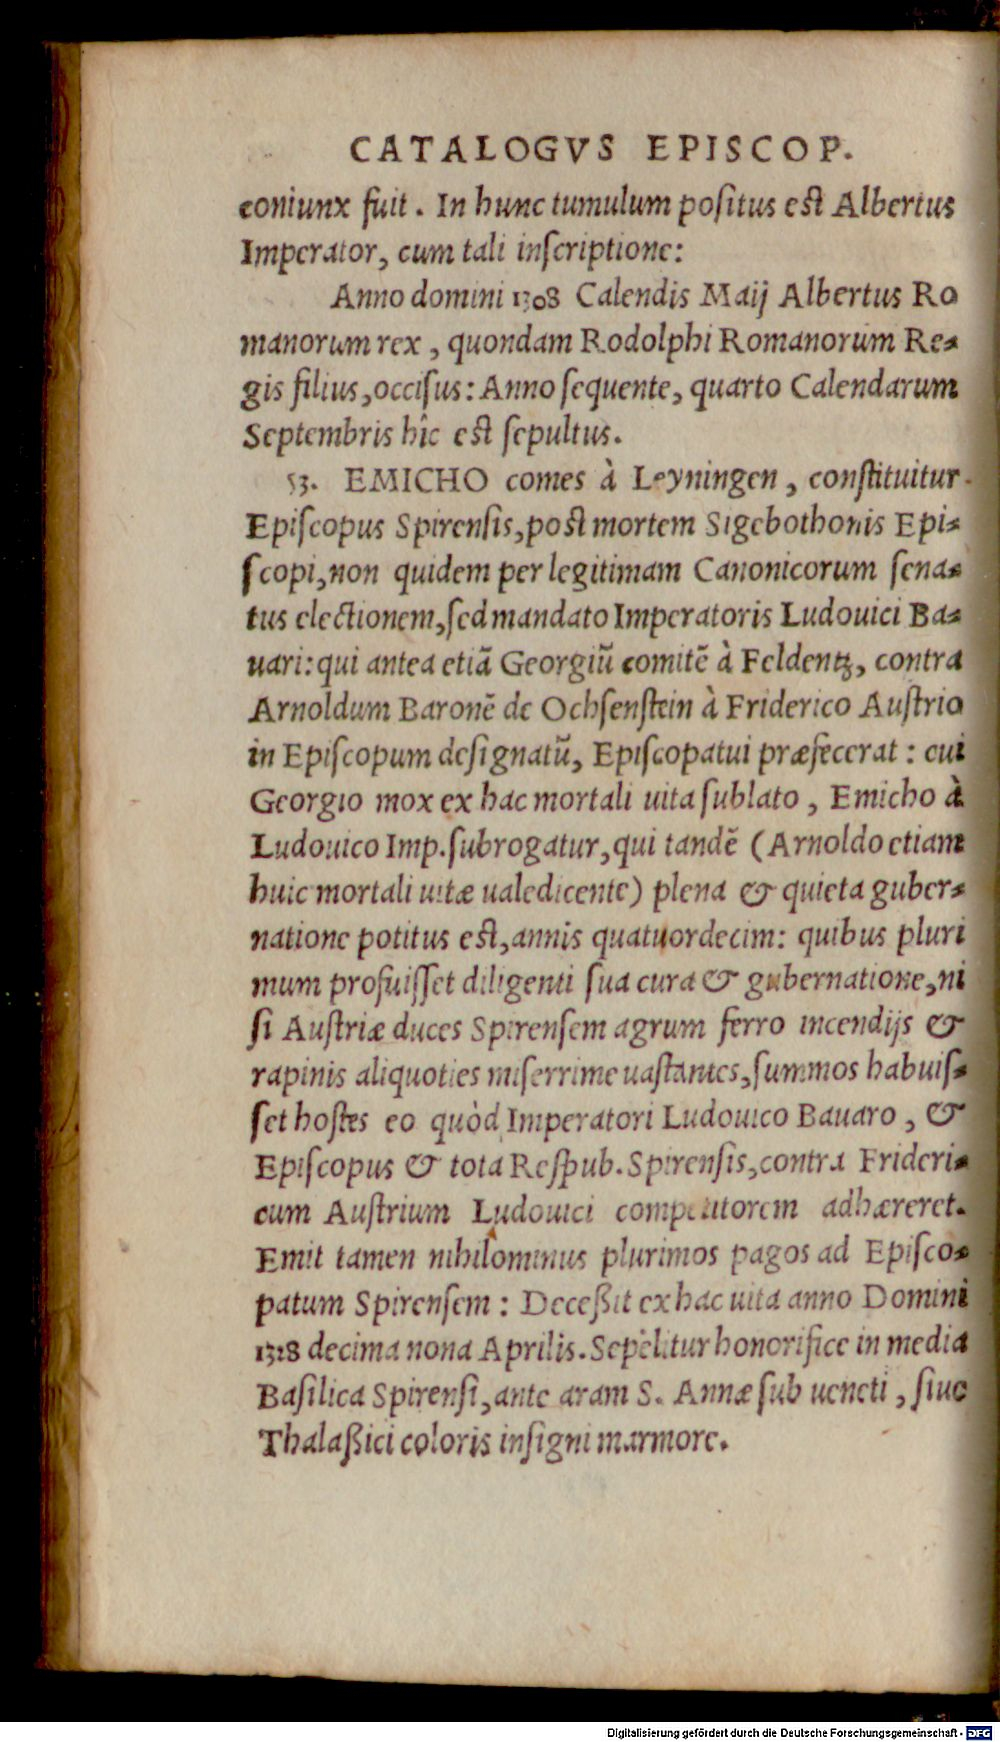 CATALOGVS EPISCOP.
coniunx fuit. In hunc tumulum poſitus eſt Albertus
Imperator, cum tali inſcriptione:
Anno domini 1308 Calendis Maij Albertus Ro
manorum rex, quondam Rodolphi Romanorum Re-
gis filius, occiſus: Anno ſequente, quarto Calendarum
Septembris hîc eſt ſepultus.
53. EMICHO comes à Leyningen, conſtituitur
Epiſcopus Spirenſis, poſt mortem Sigebothonis Epi-
ſcopi, non quidem per legitimam Canonicorum ſena-
tus electionem, ſed mandato Imperatoris Ludouici Ba-
uari: qui antea etiã Georgiũ comitẽ à Feldentz, contra
Arnoldum Baronẽ de Ochſenſtein à Friderico Auſtrio
in Epiſcopum deſignatũ, Epiſcopatui præfecerat: cui
Georgio mox ex hac mortali uita ſublato, Emicho à
Ludouico Imp. ſubrogatur, qui tandẽ (Arnoldo etiam
huic mortali uitæ ualedicente) plena & quieta guber-
natione potitus eſt, annis quatuordecim: quibus pluri
mum profuiſſet diligenti ſua cura & gubernatione, ni
ſi Auſtriæ duces Spirenſem agrum ferro incendijs &
rapinis aliquoties miſerrime uaſtantes, ſummos habuiſ-
ſet hoſtes eo quòd Imperatori Ludouico Bauaro, &
Epiſcopus & tota Reſpub. Spirenſis, contra Frideri-
cum Auſtrium Ludouici competitorem adhæreret.
Emit tamen nihilominus plurimos pagos ad Epiſco-
patum Spirenſem: Deceßit ex hac uita anno Domini
1328 decima nona Aprilis. Sepelitur honorifice in media
Baſilica Spirenſi, ante aram S. Annæ ſub ueneti, ſiue
Thalaßici coloris inſigni marmore.
Digitalisierung gefördert durch die Deutsche Forschungsgemeinschaft - DFG